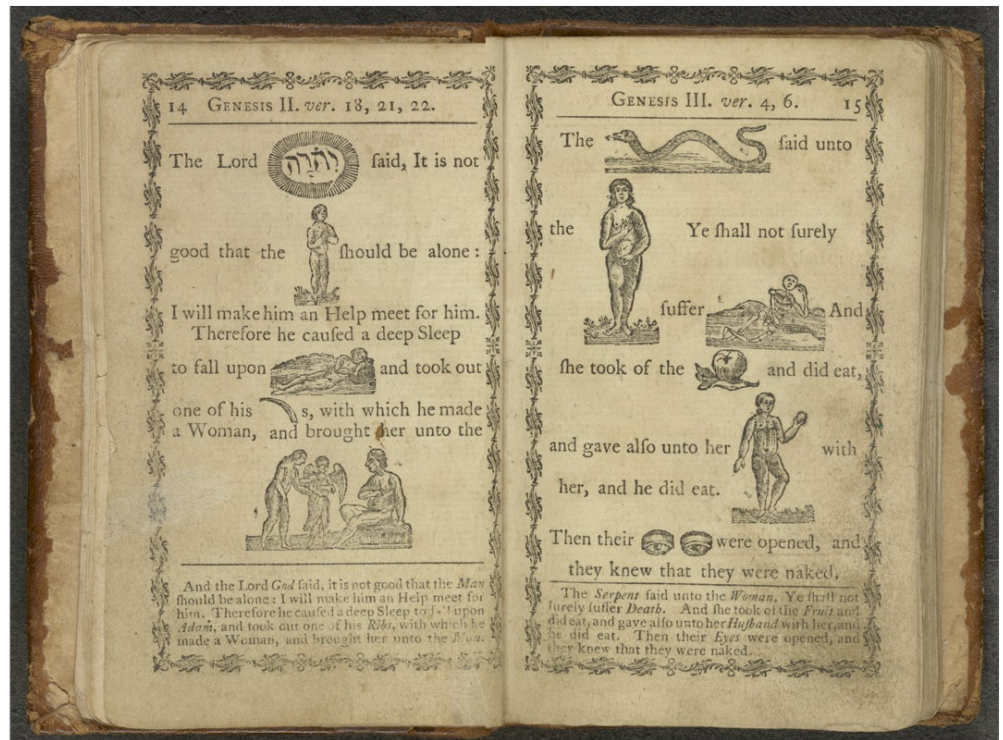 14 GENESIS II. ver. 18, 21, 22.
The Lord יְהֹוָה ſaid, It is not
good that the ſhould be alone :
I will make him an Help meet for him.
Therefore he cauſed a deep Sleep
to fall upon and took out
one of his s, with which he made
a Woman, and brought her unto the
And the Lord God ſaid, it is not good that the Man
ſhould be alone : I will make him an Help meet for
him. Therefore he cauſed a deep Sleep to fall upon
Adam, and took out one of his Ribs, with which he
made a Woman, and brought her unto the Man.
GENESIS III. ver. 4, 6. 15
The ſaid unto
the Ye ſhall not ſurely
ſuffer And
ſhe took of the and did eat,
and gave alſo unto her with
her, and he did eat.
Then their were opened, and
they knew that they were naked.
The Serpent ſaid unto the Woman, Ye ſhall not
ſurely ſuffer Death. And ſhe took of the Fruit and
did eat, and gave alſo unto her Huſband with her, and
he did eat. Then their Eyes were opened, and
they knew that they were naked.